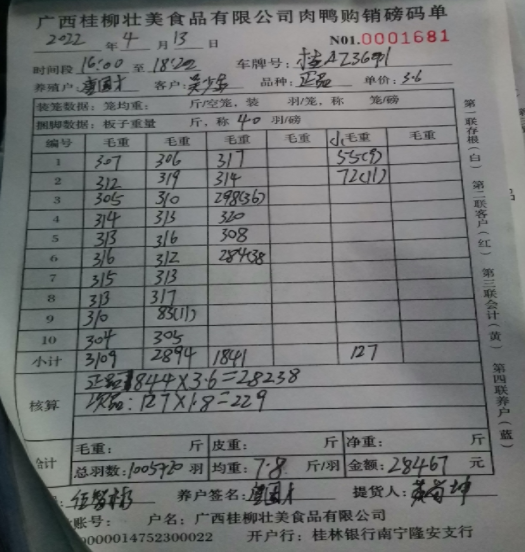 广西桂柳壮美食品有限公司肉鸭购销磅码单
2022 年 4 月 13 日 NO1.0001681
时间段 16:00 至 18:20 车牌号: 桂AZ3691
养殖户 客户: 吴少东 品种: 正品 单价: 3.6
装笼数据: 笼均重: 斤/空笼, 装 羽/笼, 称 笼/磅
捆脚数据: 板子重量 斤, 称 40 羽/磅
编号 毛重 毛重 毛重 毛重 小毛重 毛重
1 307 306 317 55(9)
2 312 319 314 72(11)
3 305 310 298(36)
4 314 313 320
5 313 316 308
6 316 312 284(38
7 315 313
8 313 317
9 310 83(11)
10 304 305
小计 3109 2894 1841 127
核算 正品7844×3.6=28238
次品: 127×1.8=229
合计 毛重: 斤 皮重: 斤 净重: 斤
总羽数: 1005+20 羽 均重: 7.8 斤/羽 金额: 28467 元
养户签名: 提货人:
账号: 户名: 广西桂柳壮美食品有限公司
0000014752300022 开户行: 桂林银行南宁隆安支行
第一联存根(白) 第二联客户(红) 第三联会计(黄) 第四联养户(蓝)